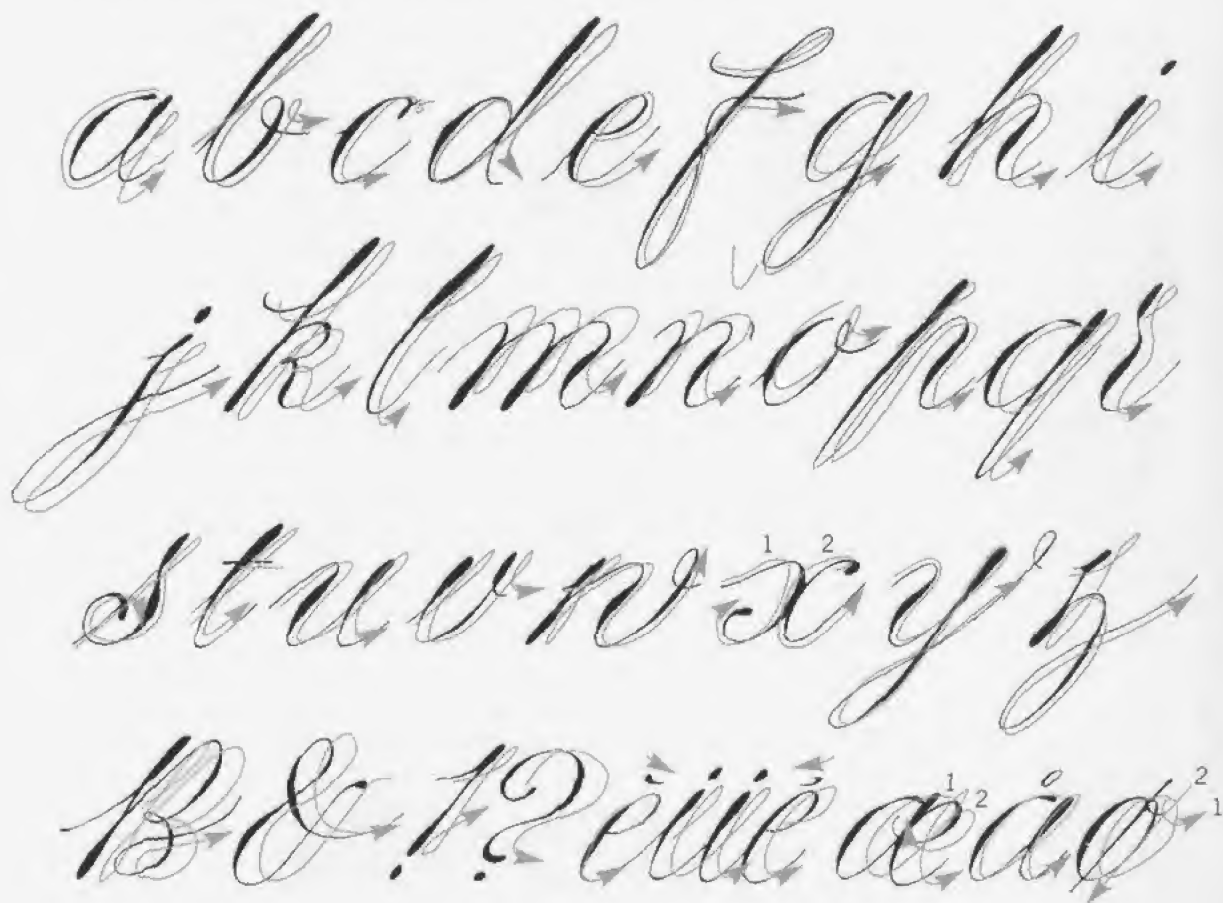 a b c d e f g h i
j k l m n o p q r
s t u v w 1 x 2 y z
ß & ! ? è ü é æ 1 2 å ø 2 1